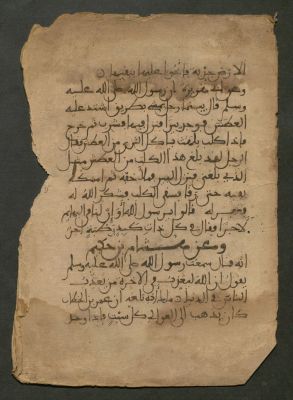 الارض جدبة فانجوا عليها بنقيها
وعن ابي هريرة ان رسول الله صلى الله عليه
وسلم قال بينما رجل يمشي بطريق اشتد عليه
العطش فوجد بيرا فنزل فيها فشرب ثم خرج
فاذا كلب يلهث ياكل الثرى من العطش فقال
الرجل لقد بلغ هذا الكلب من العطش مثل
الذي بلغ مني فنزل البير فملا خفه ثم امسكه
بفيه حتى رقا فسقى الكلب فشكر الله له
فغفر له قالوا يرسول الله وان لنا في البهايم
لاجرا فقال في كل ذات كبد رطبة اجر
وعن هشام بن حكيم
انه قال سمعت رسول الله صلى الله عليه وسلم
يقول ان الله يعذب في الاخرة من يعذب
الناس في الدنيا مالك انه بلغه ان عمر بن الخطاب
كان يذهب الى العوالي كل سبت فاذا وجد